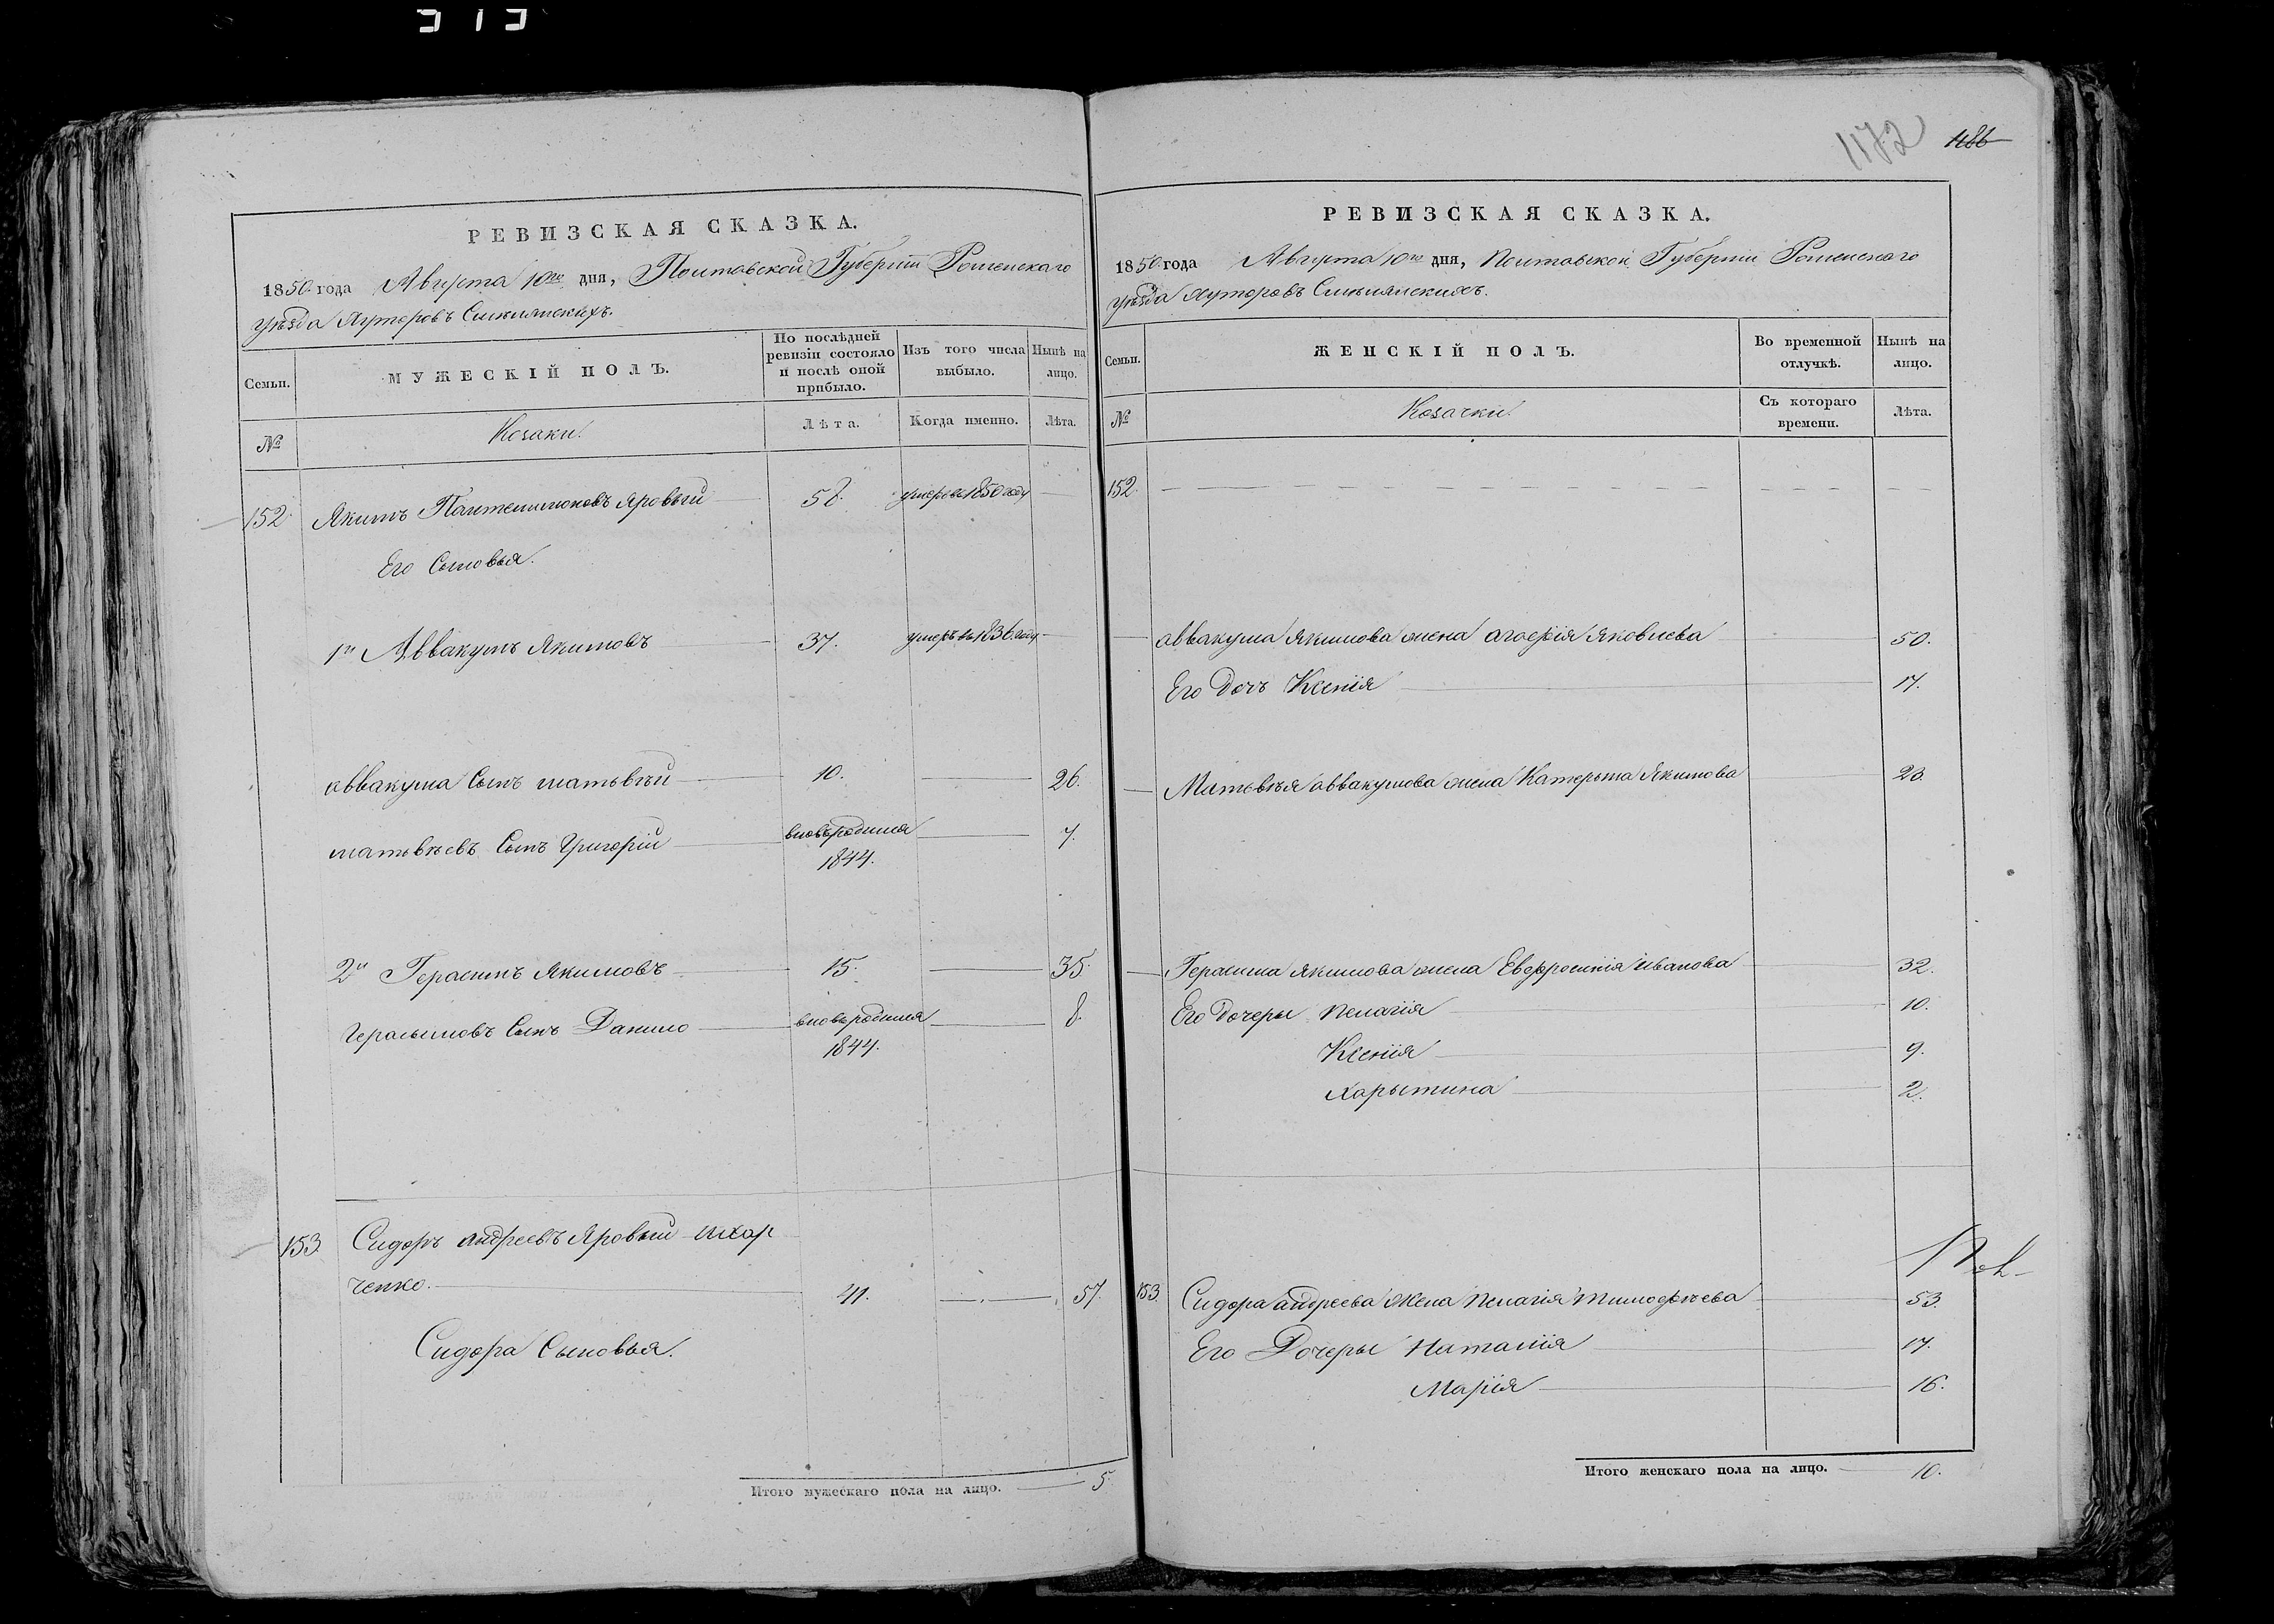 313
1172 1186
РЕВИЗСКАЯ СКАЗКА.
1850 года Августа 10го дня, Полтавской Губерніи Роменскаго
уѣзда Хуторовъ
Семьи.
МУЖЕСКІЙ ПОЛЪ.
По послѣдней ревизіи состояло и послѣ оной прибыло.
Изъ того числа выбыло.
Нынѣ на лицо.
№
Козаки.
Лѣта.
Когда именно.
Лѣта.
152 Якимъ Пантелимоновъ Яровый 58. умеръ въ 1850 году
Его Сыновья.
1й Аввакумъ Якимовъ 37. умеръ въ 1836 году
аввакума Сынъ матьвѣй 10. 26.
матьвѣевъ Сынъ Григорій вновьродился 7.
1844.
2й Герасимъ Якимовъ 15. 35.
Герасымовъ Сынъ Данило вновьродился 8.
1844.
153 Сидоръ андреевъ Яровый Шкар
ченко. 41. 57.
Сидора Сыновья.
Итого мужескаго пола на лицо. 5.
РЕВИЗСКАЯ СКАЗКА.
1850 года Августа 10го дня, Полтавской Губерніи Роменскаго
уѣзда Хуторовъ
Семьи.
ЖЕНСКІЙ ПОЛЪ.
Во временной отлучкѣ.
Нынѣ на лицо.
№
Козачки.
Съ котораго времени.
Лѣта.
152.
аввакума Якимова жена агафія Яковлева 50.
Его Дочь Ксенія 17.
Матьвѣя аввакумова жена Катерына Якимова 23.
Герасима Якимова жена Евфросинія иванова 32.
Его Дочеры Пелагія 10.
Ксенія 9.
Харытина 2.
153 Сидора андреева жена Пелагія Тимофѣева 53.
Его Дочеры Наталія 17.
Марія 16.
Итого женскаго пола на лицо. 10.